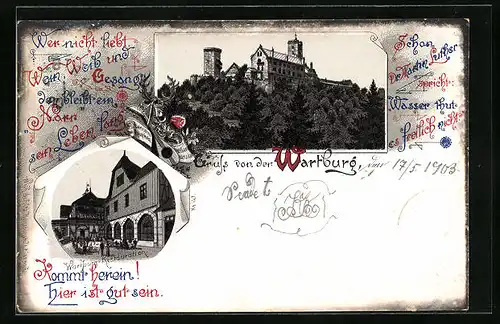 Wer nicht liebt
Wein, Weib und
Gesang
der bleibt ein
Narr
sein Leben lang
Schon
Dr. Martin Luther
spricht:
Wasser thut
es freilich nicht
Gruss von der Wartburg,
17/5 1903
Kommt herein!
Hier ist gut sein.